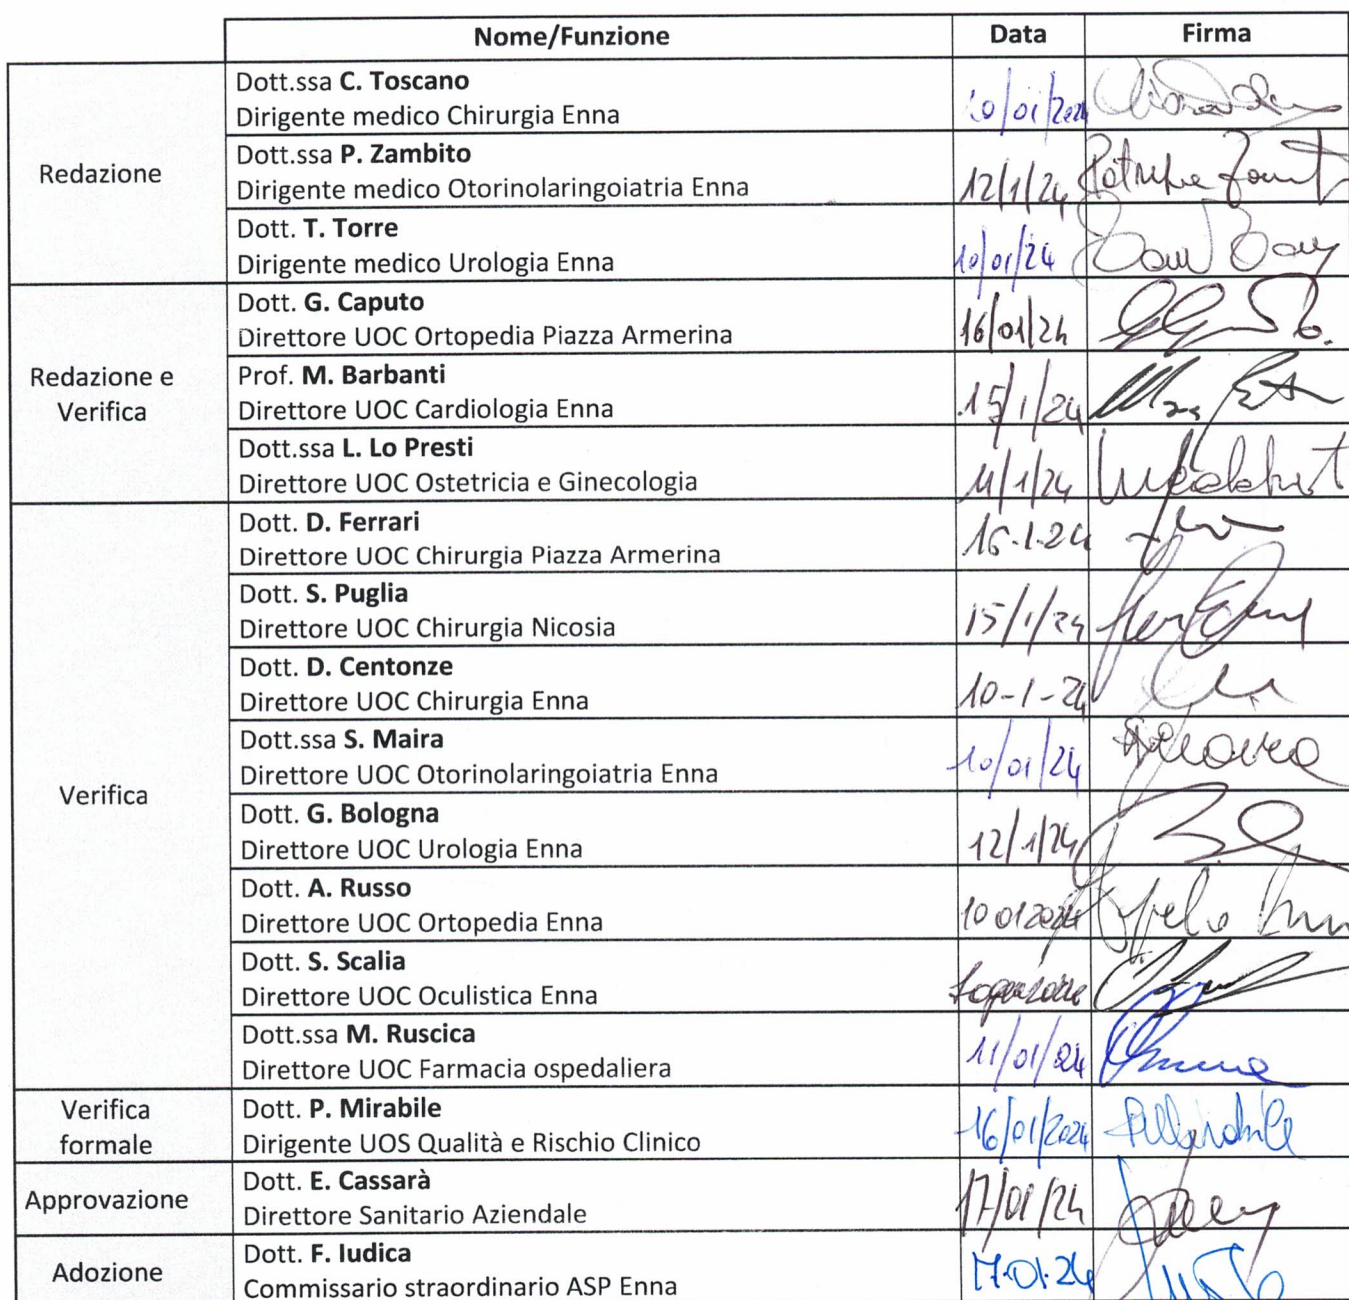 Nome/Funzione Data Firma
Redazione
Dott.ssa C. Toscano
Dirigente medico Chirurgia Enna
10/01/2024
Dott.ssa P. Zambito
Dirigente medico Otorinolaringoiatria Enna
12/1/24
Dott. T. Torre
Dirigente medico Urologia Enna
10/01/24
Redazione e
Verifica
Dott. G. Caputo
Direttore UOC Ortopedia Piazza Armerina
16/01/24
Prof. M. Barbanti
Direttore UOC Cardiologia Enna
15/1/24
Dott.ssa L. Lo Presti
Direttore UOC Ostetricia e Ginecologia
11/1/24
Verifica
Dott. D. Ferrari
Direttore UOC Chirurgia Piazza Armerina
16-1-24
Dott. S. Puglia
Direttore UOC Chirurgia Nicosia
15/1/24
Dott. D. Centonze
Direttore UOC Chirurgia Enna
10-1-24
Dott.ssa S. Maira
Direttore UOC Otorinolaringoiatria Enna
10/01/24
Dott. G. Bologna
Direttore UOC Urologia Enna
12/1/24
Dott. A. Russo
Direttore UOC Ortopedia Enna
10 01 2024
Dott. S. Scalia
Direttore UOC Oculistica Enna
Dott.ssa M. Ruscica
Direttore UOC Farmacia ospedaliera
11/01/24
Verifica
formale
Dott. P. Mirabile
Dirigente UOS Qualità e Rischio Clinico
16/01/2024
Approvazione
Dott. E. Cassarà
Direttore Sanitario Aziendale
17/01/24
Adozione
Dott. F. Iudica
Commissario straordinario ASP Enna
17-01-24